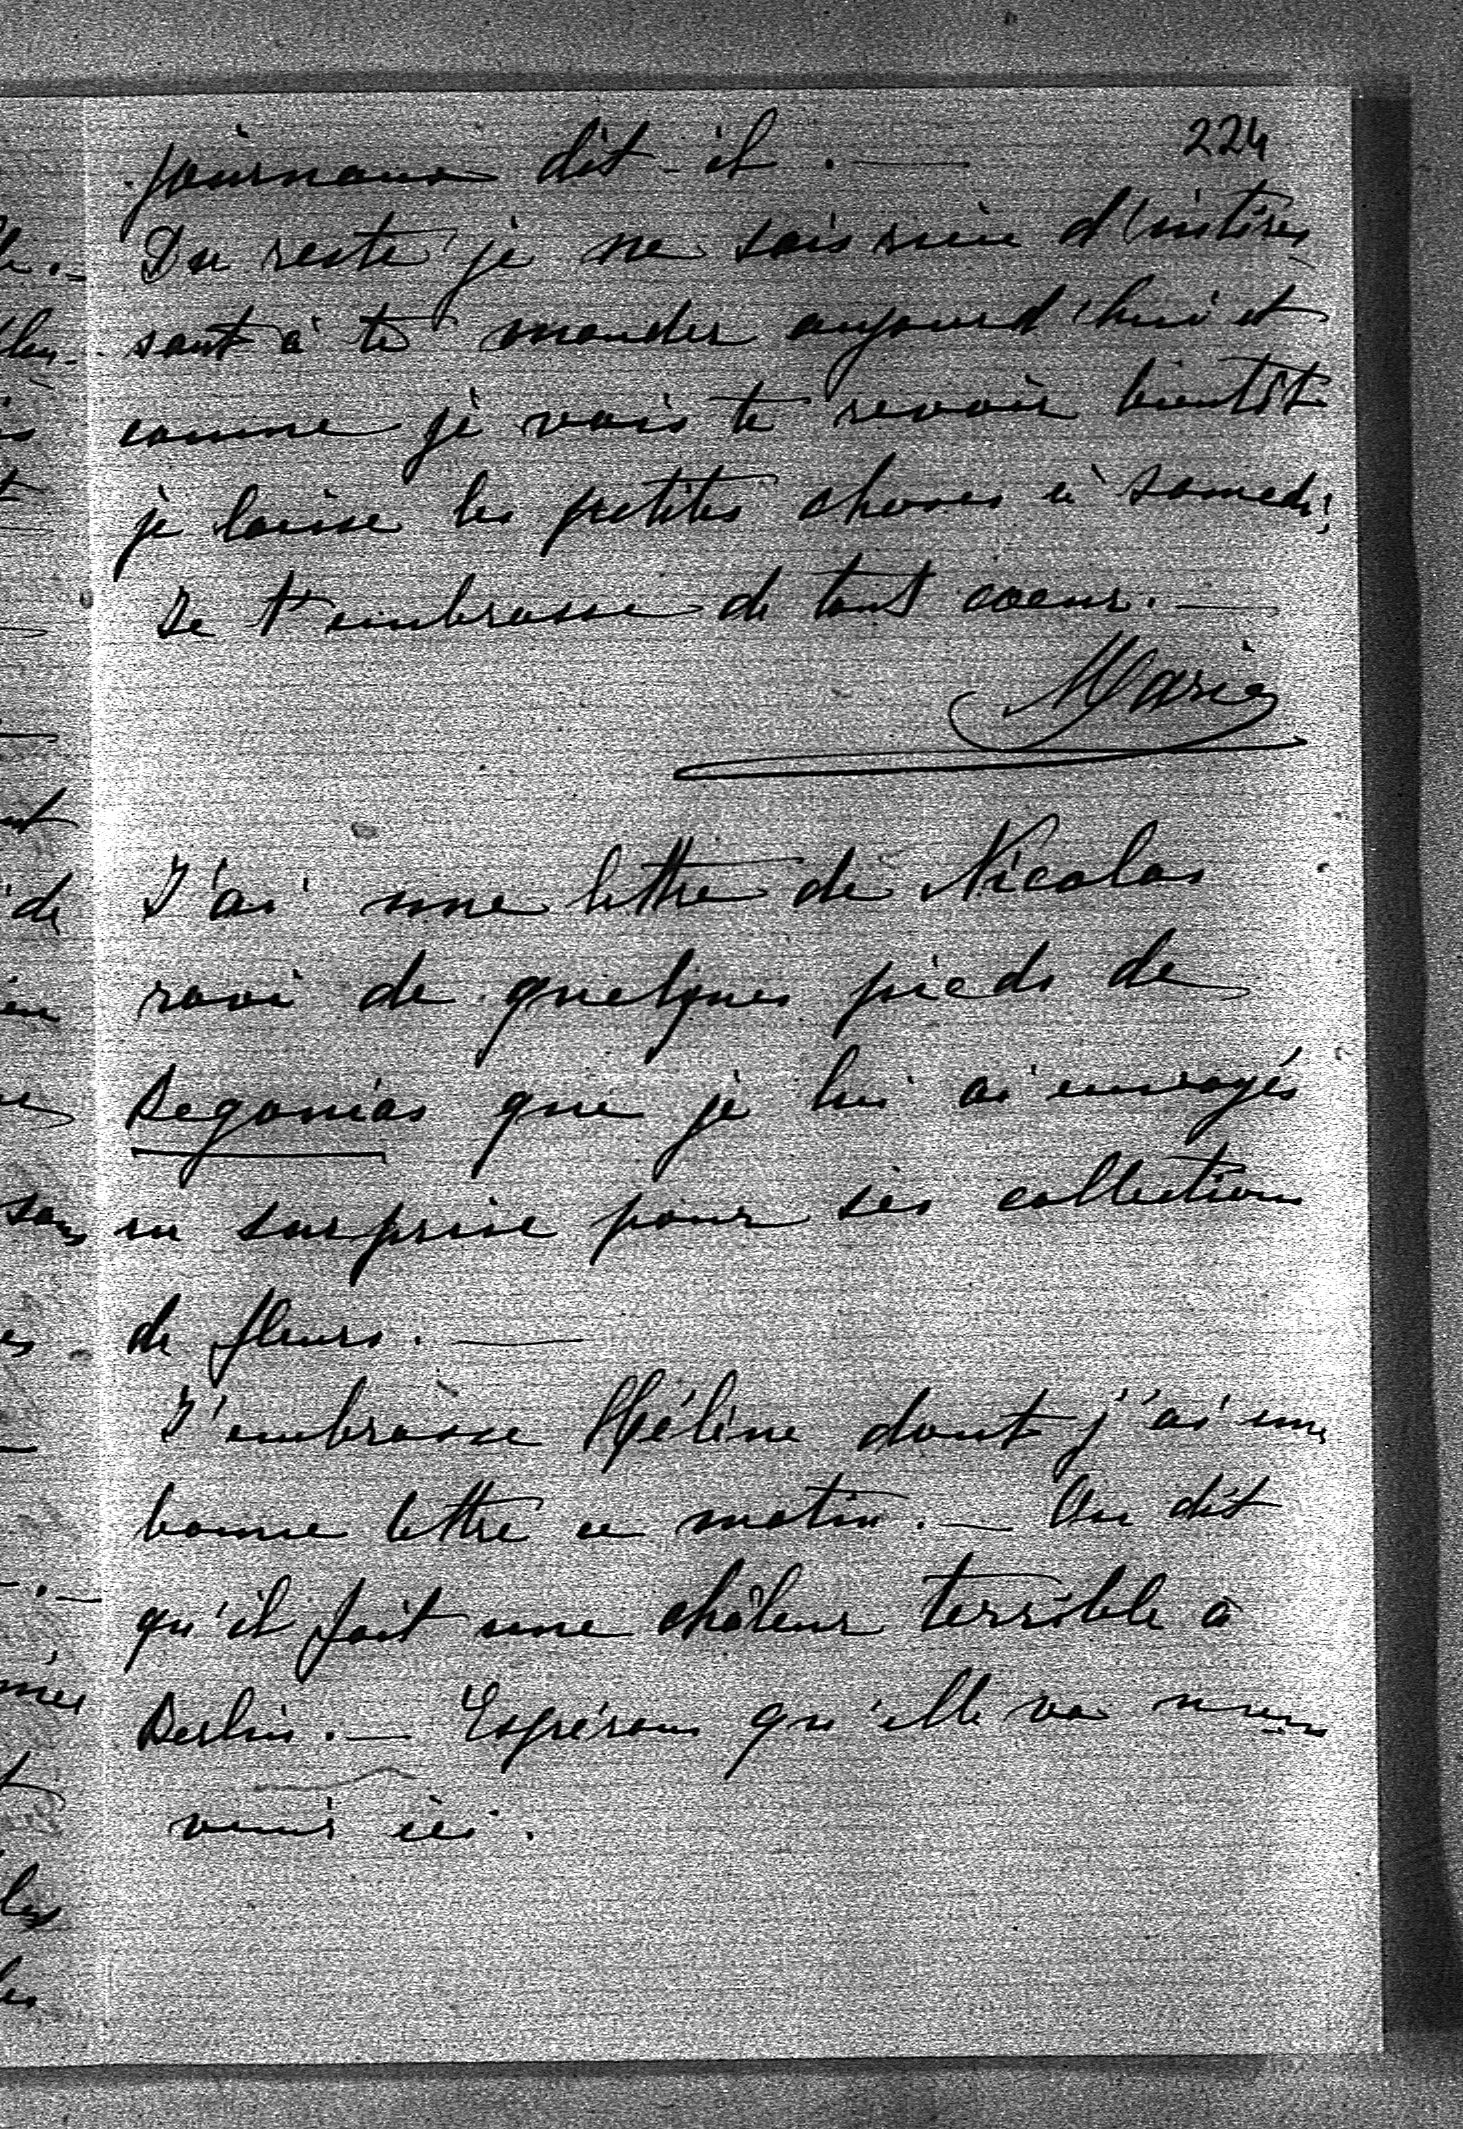 224
journaux dit-il. —
Du reste je ne sais rien d'intéres-
sant à te mander aujourd'hui et
comme je vais te revoir bientôt
je laisse les petites choses à samedi;
Je t'embrasse de tout coeur. —
Marie
J'ai une lettre de Nicolas
ravi de quelques pieds de
Begonias que je lui ai envoyés
en surprise pour ses collections
de fleurs. —
J'embrasse Hélène dont j'ai une
bonne lettre ce matin. — On dit
qu'il fait une châleur terrible à
Berlin. — Espérons qu'elle va
venir ici.